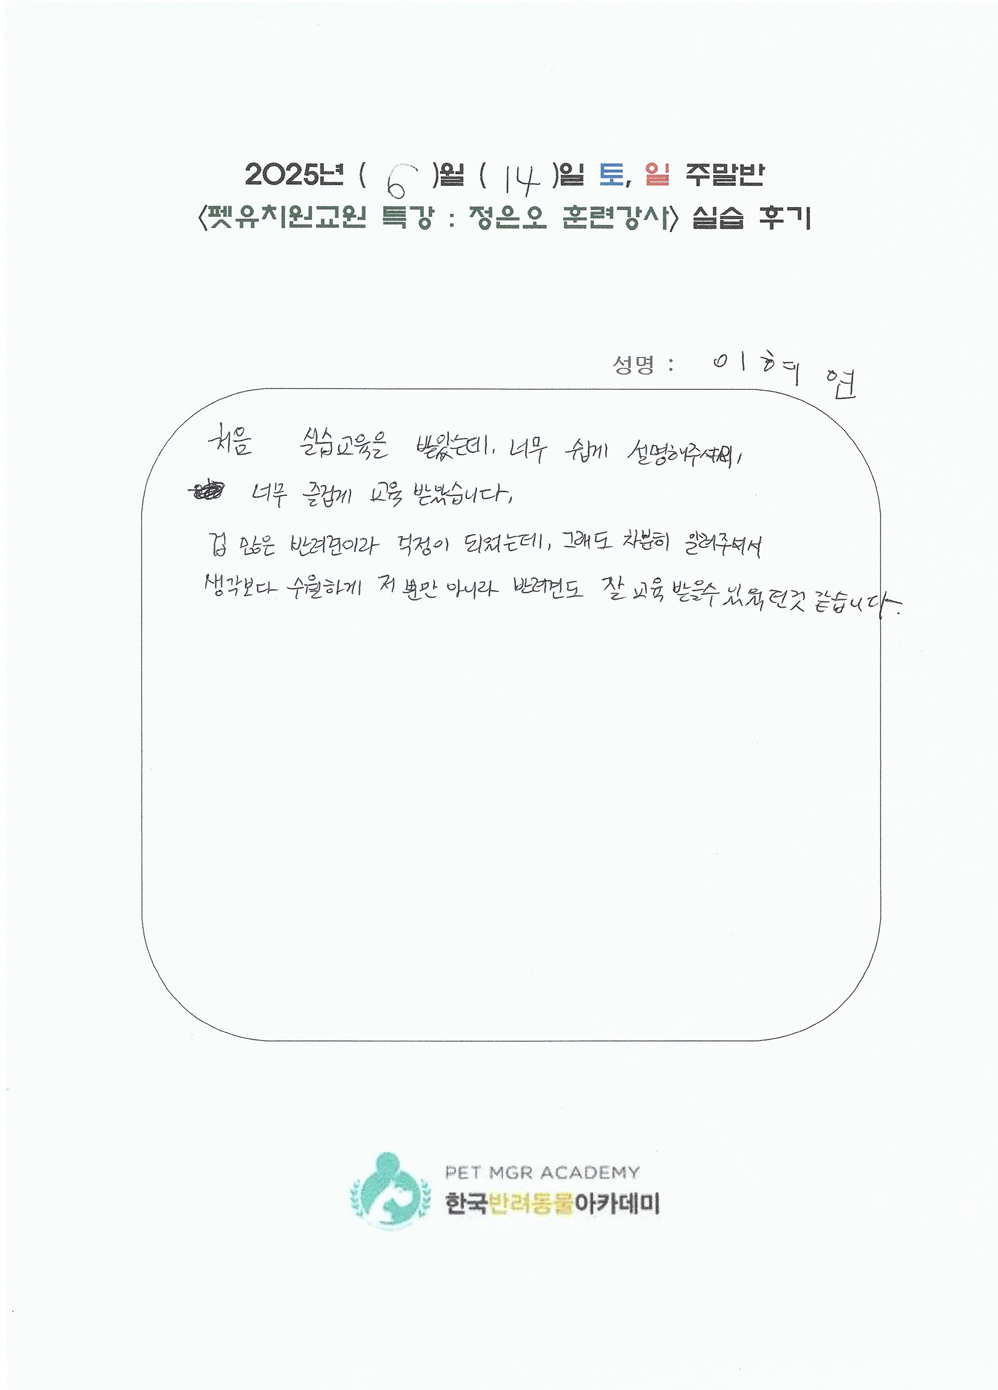 2025년 ( 6 )월 ( 14 )일 토, 일 주말반
<펫유치원교원 특강 : 정은오 훈련강사> 실습 후기
성명 : 이혜연
처음 실습교육을 받았는데, 너무 쉽게 설명해주셔서,
너무 즐겁게 교육 받았습니다.
겁 많은 반려견이라 걱정이 되었는데, 그래도 차분히 알려주셔서
생각보다 수월하게 저 뿐만 아니라 반려견도 잘 교육 받을수 있었던것 같습니다.
PET MGR ACADEMY
한국반려동물아카데미